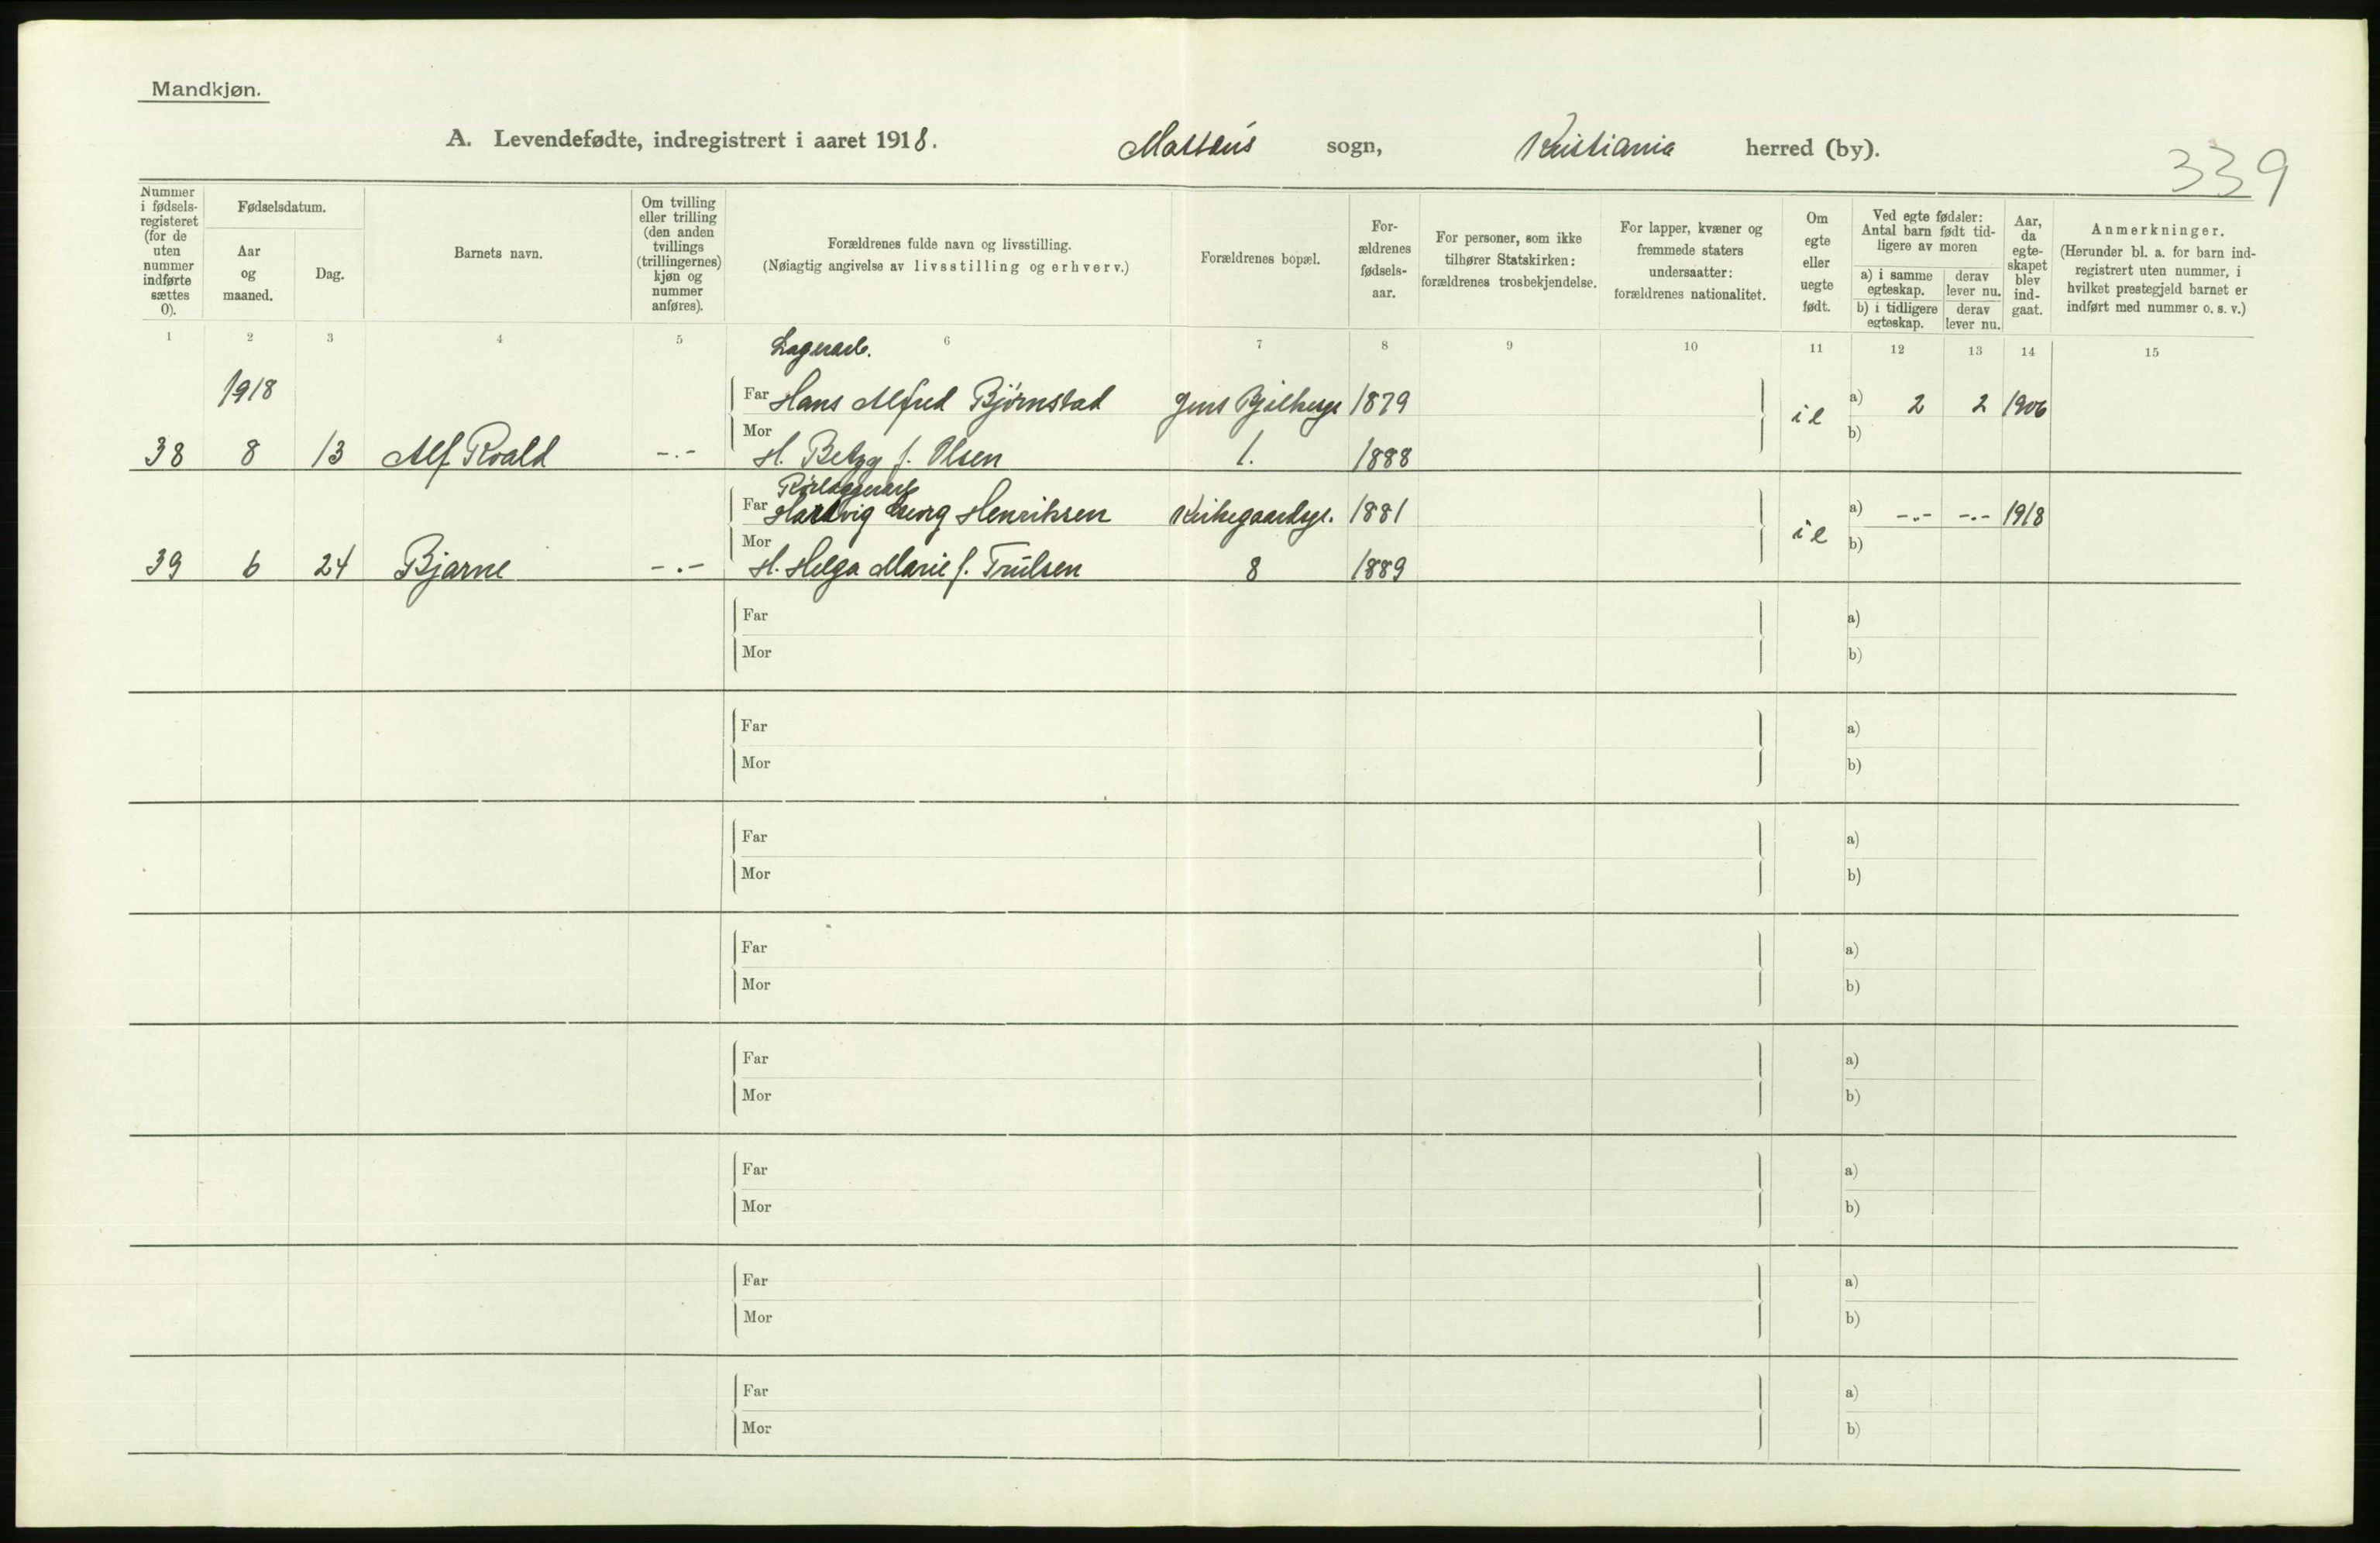 Mandkjøn.
A. Levendefødte, indregistrert i aaret 1918. Mattæus sogn, Kristiania herred (by).
339
Nummer i fødsels-registeret (for de uten nummer indførte sættes 0).
Fødselsdatum.
Aar og maaned.
Dag.
Barnets navn.
Om tvilling eller trilling (den anden tvillings (trillingernes) kjøn og nummer anføres).
Forældrenes fulde navn og livsstilling.
(Nøiagtig angivelse av livsstilling og erhverv.)
Forældrenes bopæl.
For-ældrenes fødsels-aar.
For personer, som ikke tilhører Statskirken: forældrenes trosbekjendelse.
For lapper, kvæner og fremmede staters undersaatter: forældrenes nationalitet.
Om egte eller uegte født.
Ved egte fødsler: Antal barn født tid-ligere av moren
a) i samme egteskap.
derav lever nu.
b) i tidligere egteskap.
derav lever nu.
Aar, da egte-skapet blev ind-gaat.
Anmerkninger.
(Herunder bl. a. for barn ind-registrert uten nummer, i hvilket prestegjeld barnet er indført med nummer o. s. v.)
1 2 3 4 5 6 7 8 9 10 11 12 13 14 15
Lagerarb.
1918 Far Hans Alfred Björnstad Jens Bjelkesgt 1879 i e a) 2 2 1906
38 8 13 Alf Roald -.- Mor H. Betzy f. Olsen 1. 1888 b)
Rörlæggerarb
Far Hartvig Georg Henriksen Kirkegaardsgt. 1881 i e a) -.- -.- 1918
39 6 24 Bjarne -.- Mor H. Helga Marie f. Trulsen 8 1889 b)
Far a)
Mor b)
Far a)
Mor b)
Far a)
Mor b)
Far a)
Mor b)
Far a)
Mor b)
Far a)
Mor b)
Far a)
Mor b)
Far a)
Mor b)